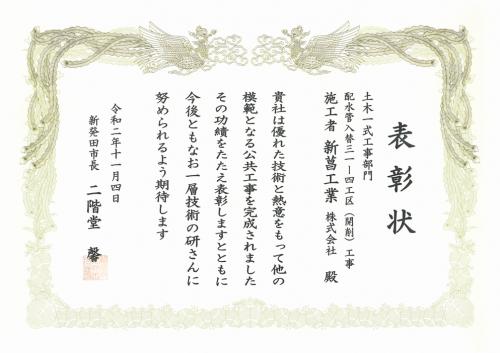 表彰状
土木一式工事部門
配水管入替三一ー四工区（開削）工事
施工者 新菖工業 株式会社 殿
貴社は優れた技術と熱意をもって他の
模範となる公共工事を完成されました
その功績をたたえ表彰しますとともに
今後ともなお一層技術の研さんに
努められるよう期待します
令和二年十一月四日
新発田市長 二階堂 馨